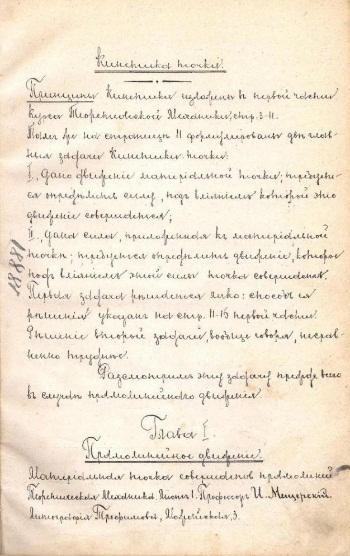 Кинетика точки.
Принципы Кинетики изложены въ первой части
Курса Теоретической Механики, стр. 3-11.
Тамъ же на страницѣ 11 формулированы двѣ глав-
ныя задачи Кинетики точки:
I., Дано движеніе матеріальной точки; требует-
ся опредѣлить силу, подъ вліяніемъ которой это
движеніе совершается;
II., дана сила, приложенная къ матеріальной
точкѣ; требуется опредѣлить движеніе, которое
подъ вліяніемъ этой силы точка совершаетъ.
Первая задача рѣшается легко: способъ ея
рѣшенія указанъ на стр. 11-16 первой части.
Рѣшеніе второй задачи, вообще говоря, несрав-
ненно труднѣе.
Разсмотримъ эту задачу прежде всего
въ случаѣ прямолинейнаго движенія.
Глава I.
Прямолинейное движеніе.
Матеріальная точка совершаетъ прямолиней
Теоретическая Механика. Профессоръ И. Мещерскій.
Литографія Трофимова, Можайская, 3.